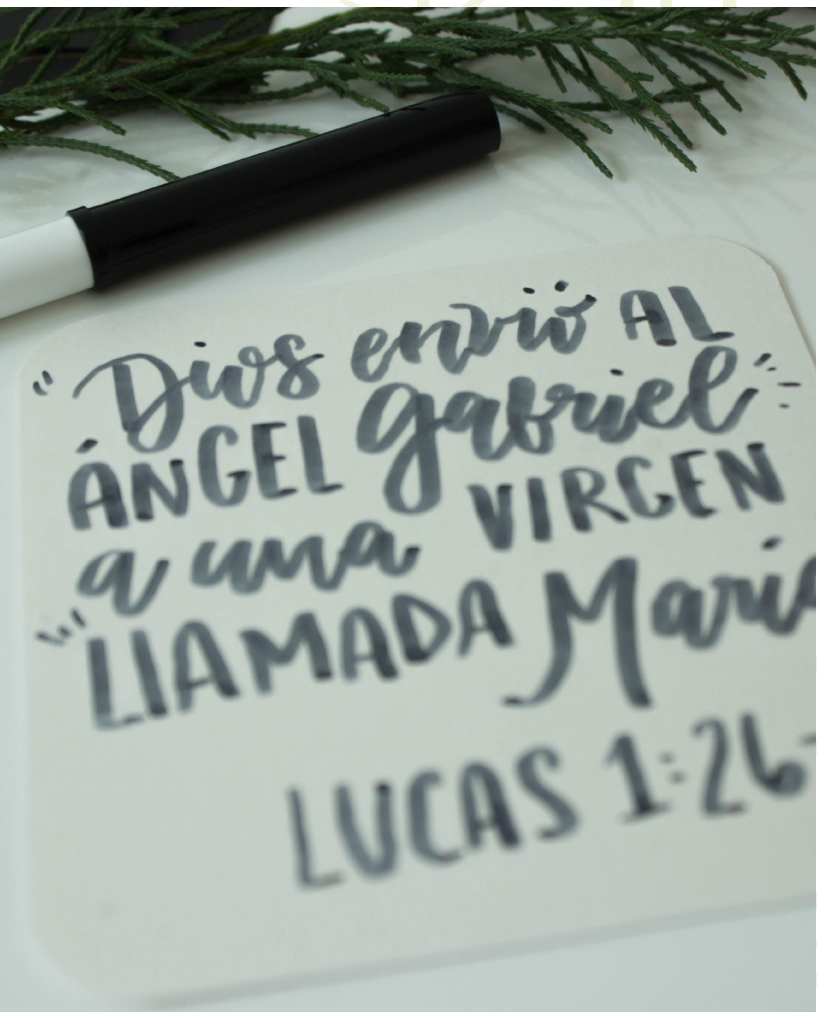 "Dios envió AL
ÁNGEL Gabriel
a una VIRGEN
LLAMADA María
LUCAS 1:26-